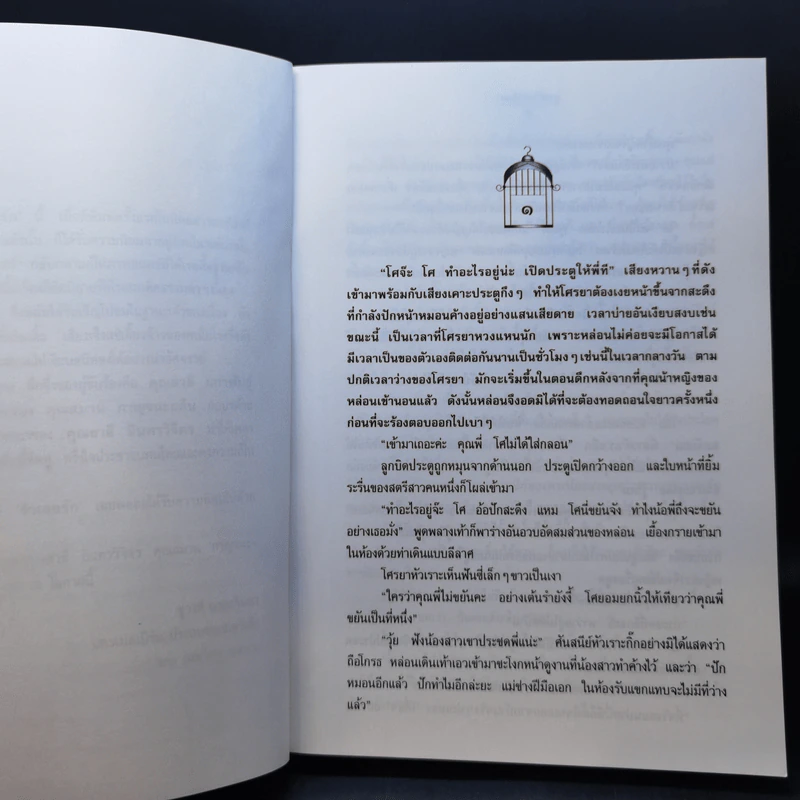 ๑
“โศจ๊ะ โศ ทำอะไรอยู่น่ะ เปิดประตูให้พี่ที” เสียงหวานๆ ที่ดัง
เข้ามาพร้อมกับเสียงเคาะประตูกึงๆ ทำให้โศรยาต้องเงยหน้าขึ้นจากสะดึง
ที่กำลังปักหน้าหมอนค้างอยู่อย่างแสนเสียดาย เวลาบ่ายอันเงียบสงบเช่น
ขณะนี้ เป็นเวลาที่โศรยาหวงแหนนัก เพราะหล่อนไม่ค่อยจะมีโอกาสได้
มีเวลาเป็นของตัวเองติดต่อกันนานเป็นชั่วโมงๆ เช่นนี้ในเวลากลางวัน ตาม
ปกติเวลาว่างของโศรยา มักจะเริ่มขึ้นในตอนดึกหลังจากที่คุณน้าหญิงของ
หล่อนเข้านอนแล้ว ดังนั้นหล่อนจึงอดมิได้ที่จะต้องทอดถอนใจยาวครั้งหนึ่ง
ก่อนที่จะร้องตอบออกไปเบาๆ
“เข้ามาเถอะค่ะ คุณพี่ โศไม่ได้ใส่กลอน”
ลูกบิดประตูถูกหมุนจากด้านนอก ประตูเปิดกว้างออก และใบหน้าที่ยิ้ม
ระรื่นของสตรีสาวคนหนึ่งก็โผล่เข้ามา
“ทำอะไรอยู่จ๊ะ โศ อ้อปักสะดึง แหม โศนี่ขยันจัง ทำไงน้อพี่ถึงจะขยัน
อย่างเธอมั่ง” พูดพลางเท้าก็พาร่างอันอวบอัดสมส่วนของหล่อน เยื้องกรายเข้ามา
ในห้องด้วยท่าเดินแบบลีลาศ
โศรยาหัวเราะเห็นฟันซี่เล็กๆ ขาวเป็นเงา
“ใครว่าคุณพี่ไม่ขยันคะ อย่างเต้นรำยังงี้ โศยอมยกนิ้วให้เทียวว่าคุณพี่
ขยันเป็นที่หนึ่ง”
“วุ้ย ฟังน้องสาวเขาประชดพี่แน่ะ” ศันสนีย์หัวเราะกิ๊กอย่างมิได้แสดงว่า
ถือโกรธ หล่อนเดินเท้าเอวเข้ามาชะโงกหน้าดูงานที่น้องสาวทำค้างไว้ และว่า “ปัก
หมอนอีกแล้ว ปักทำไมอีกล่ะยะ แม่ช่างฝีมือเอก ในห้องรับแขกแทบจะไม่มีที่ว่าง
แล้ว”